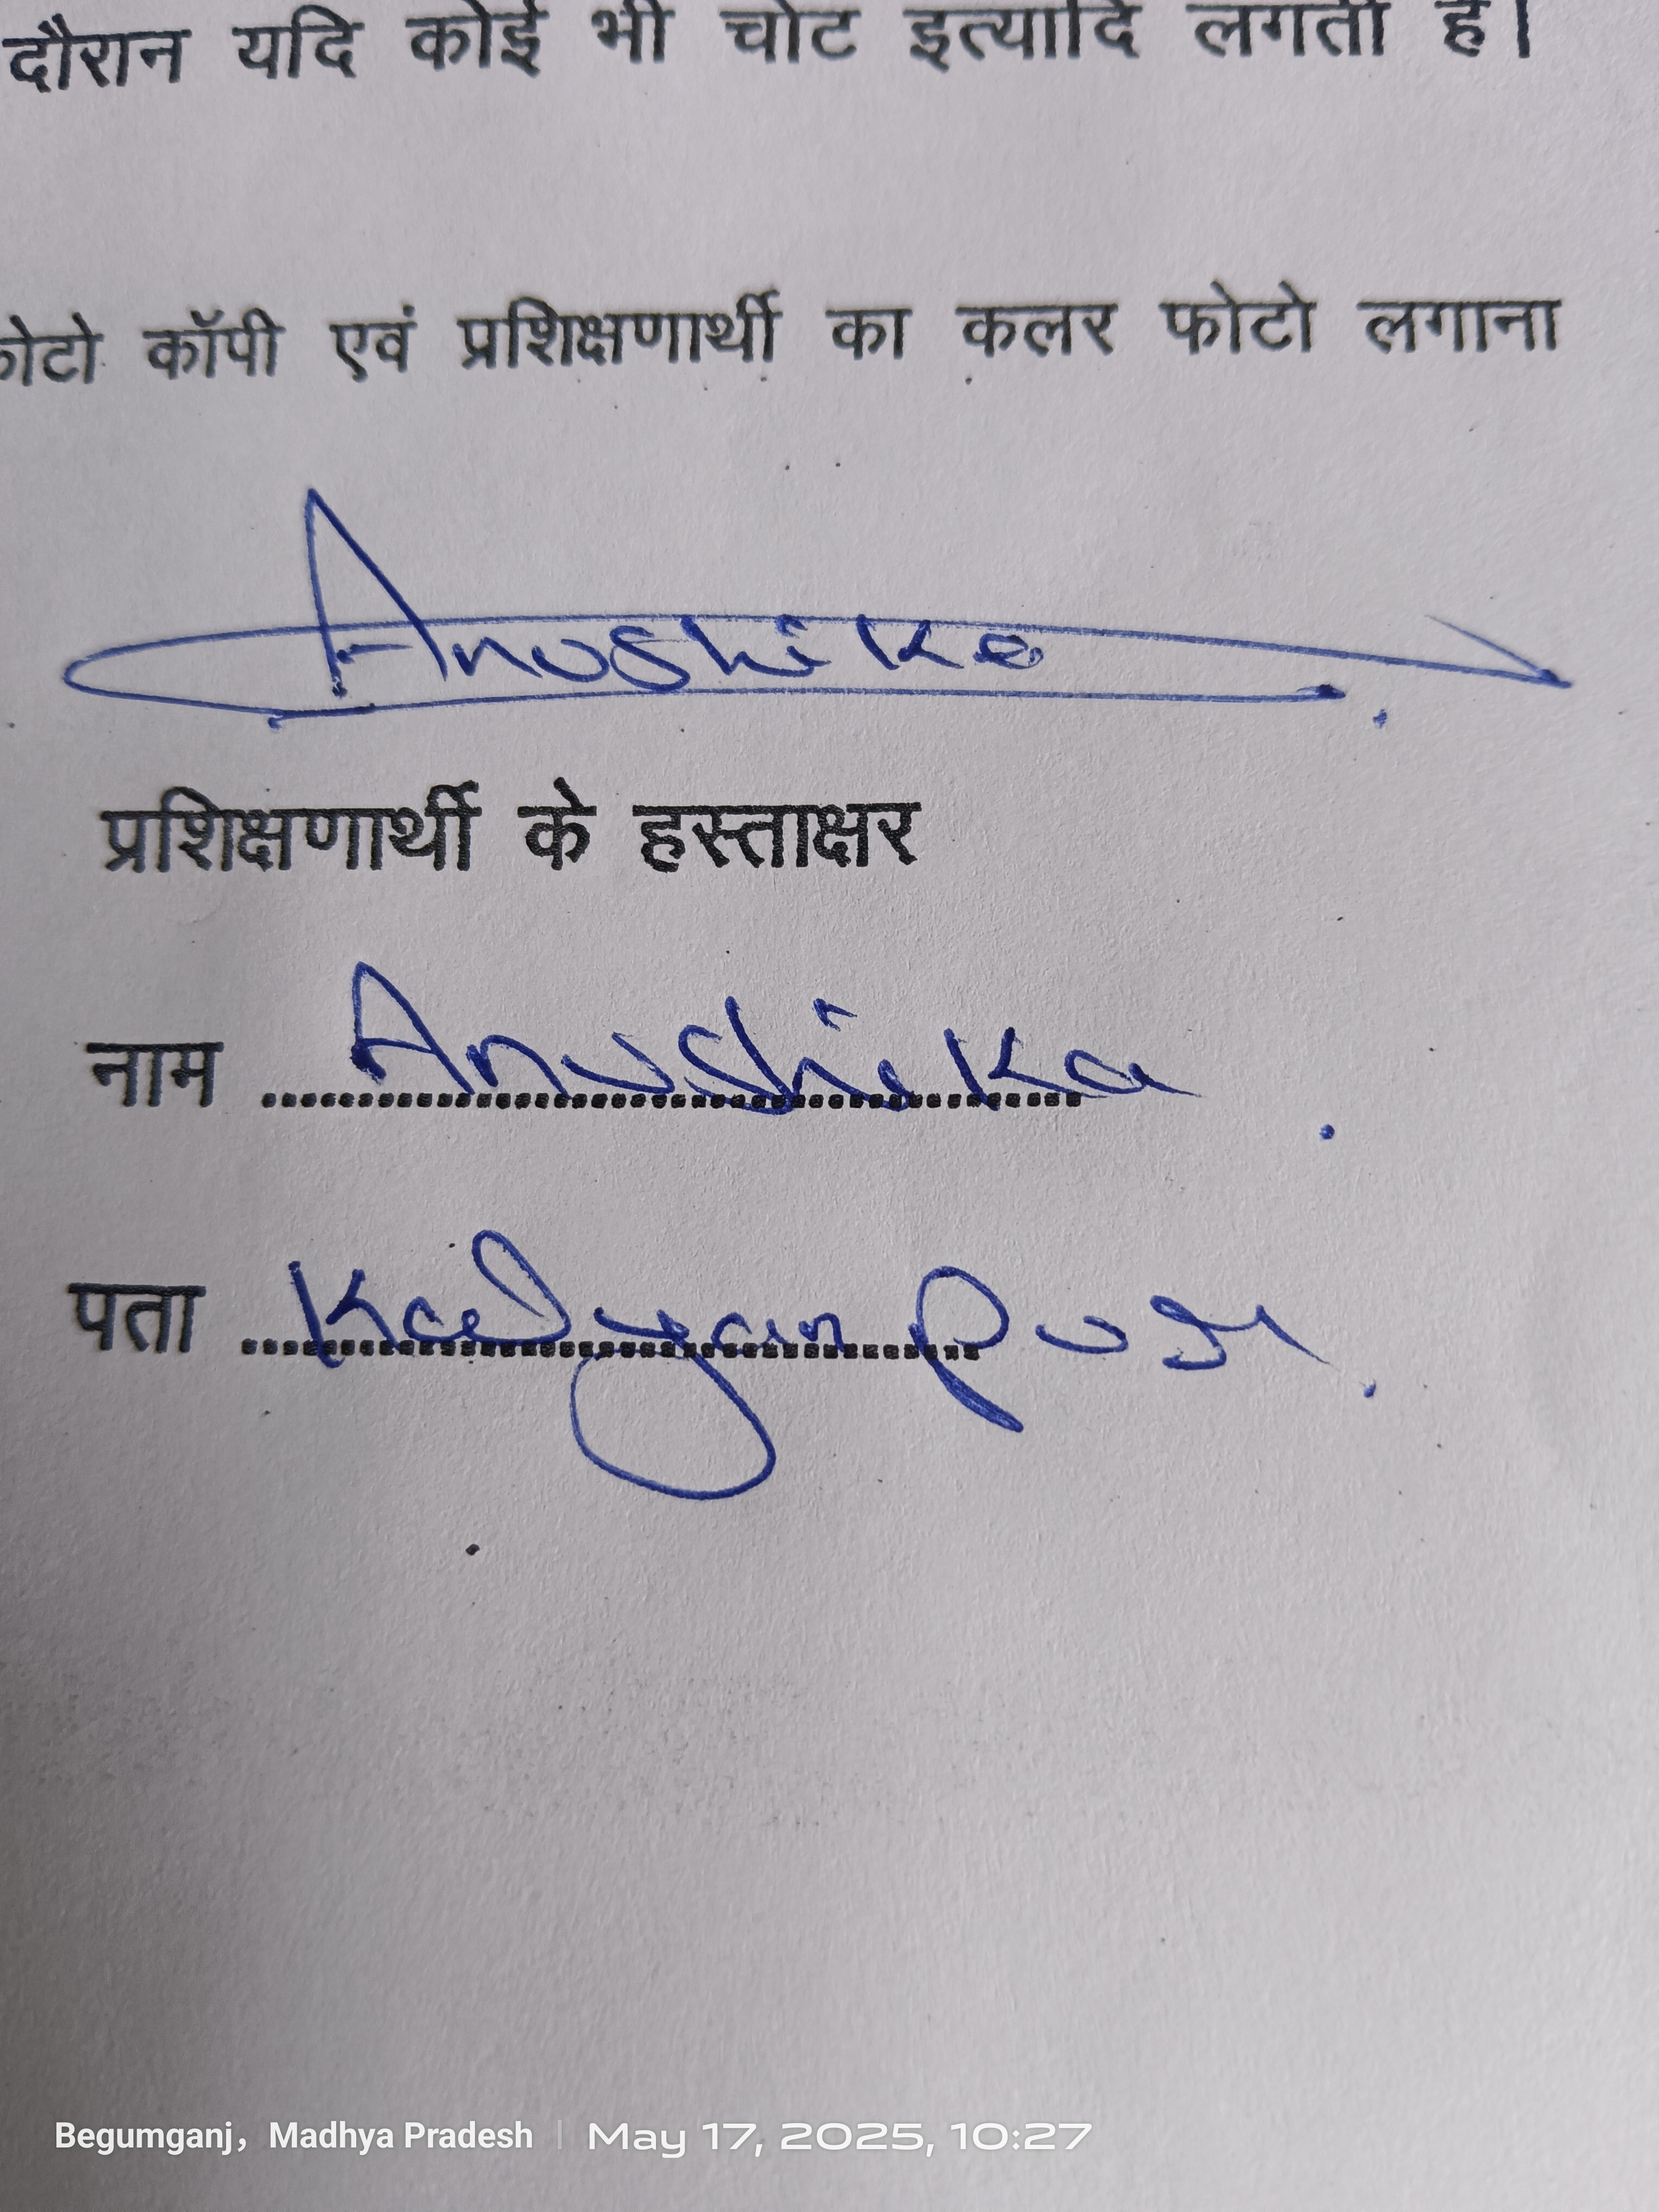 दौरान यदि कोई भी चोट इत्यादि लगती है।
फोटो कॉपी एवं प्रशिक्षणार्थी का कलर फोटो लगाना
Anushika
प्रशिक्षणार्थी के हस्ताक्षर
नाम Anushika
पता Kalyanpur
Begumganj, Madhya Pradesh | May 17, 2025, 10:27